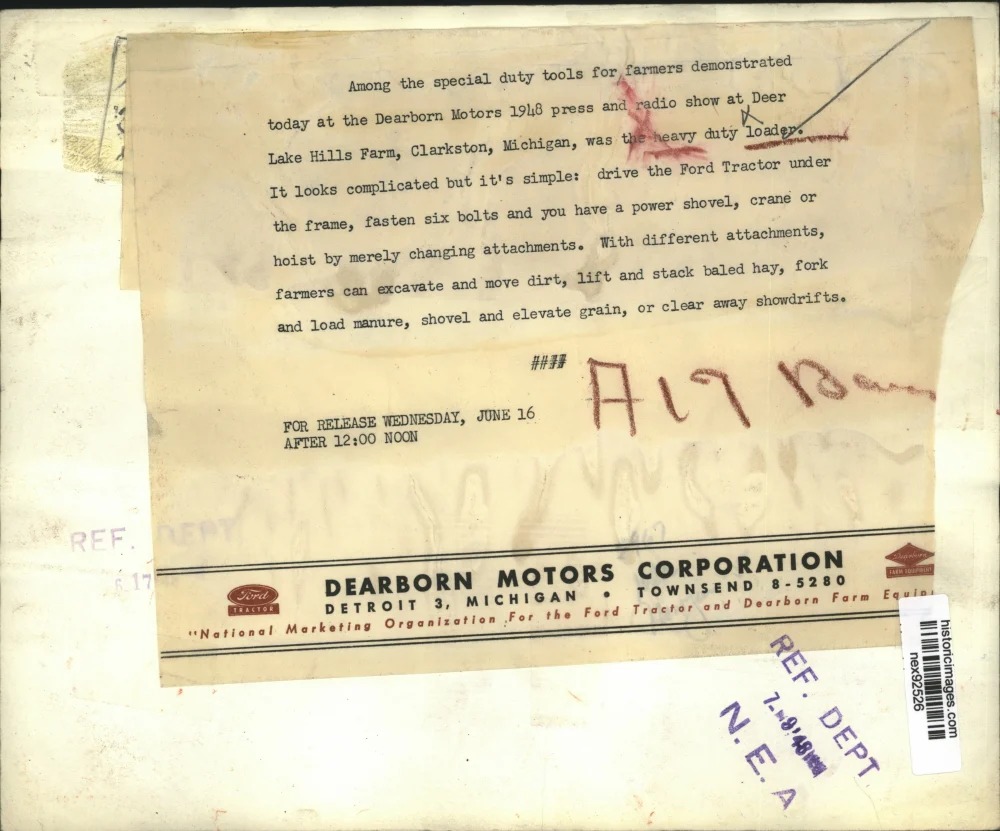 Among the special duty tools for farmers demonstrated
today at the Dearborn Motors 1948 press and radio show at Deer
Lake Hills Farm, Clarkston, Michigan, was the heavy duty loader.
It looks complicated but it's simple: drive the Ford Tractor under
the frame, fasten six bolts and you have a power shovel, crane or
hoist by merely changing attachments. With different attachments,
farmers can excavate and move dirt, lift and stack baled hay, fork
and load manure, shovel and elevate grain, or clear away showdrifts.
####
A17
FOR RELEASE WEDNESDAY, JUNE 16
AFTER 12:00 NOON
REF. DEPT
17
DEARBORN MOTORS CORPORATION
DETROIT 3, MICHIGAN • TOWNSEND 8-5280
"National Marketing Organization For the Ford Tractor and Dearborn Farm
Ford
TRACTOR
Dearborn
FARM EQUIPMENT
historicimages.com
nex92526
REF. DEPT
N. E. A